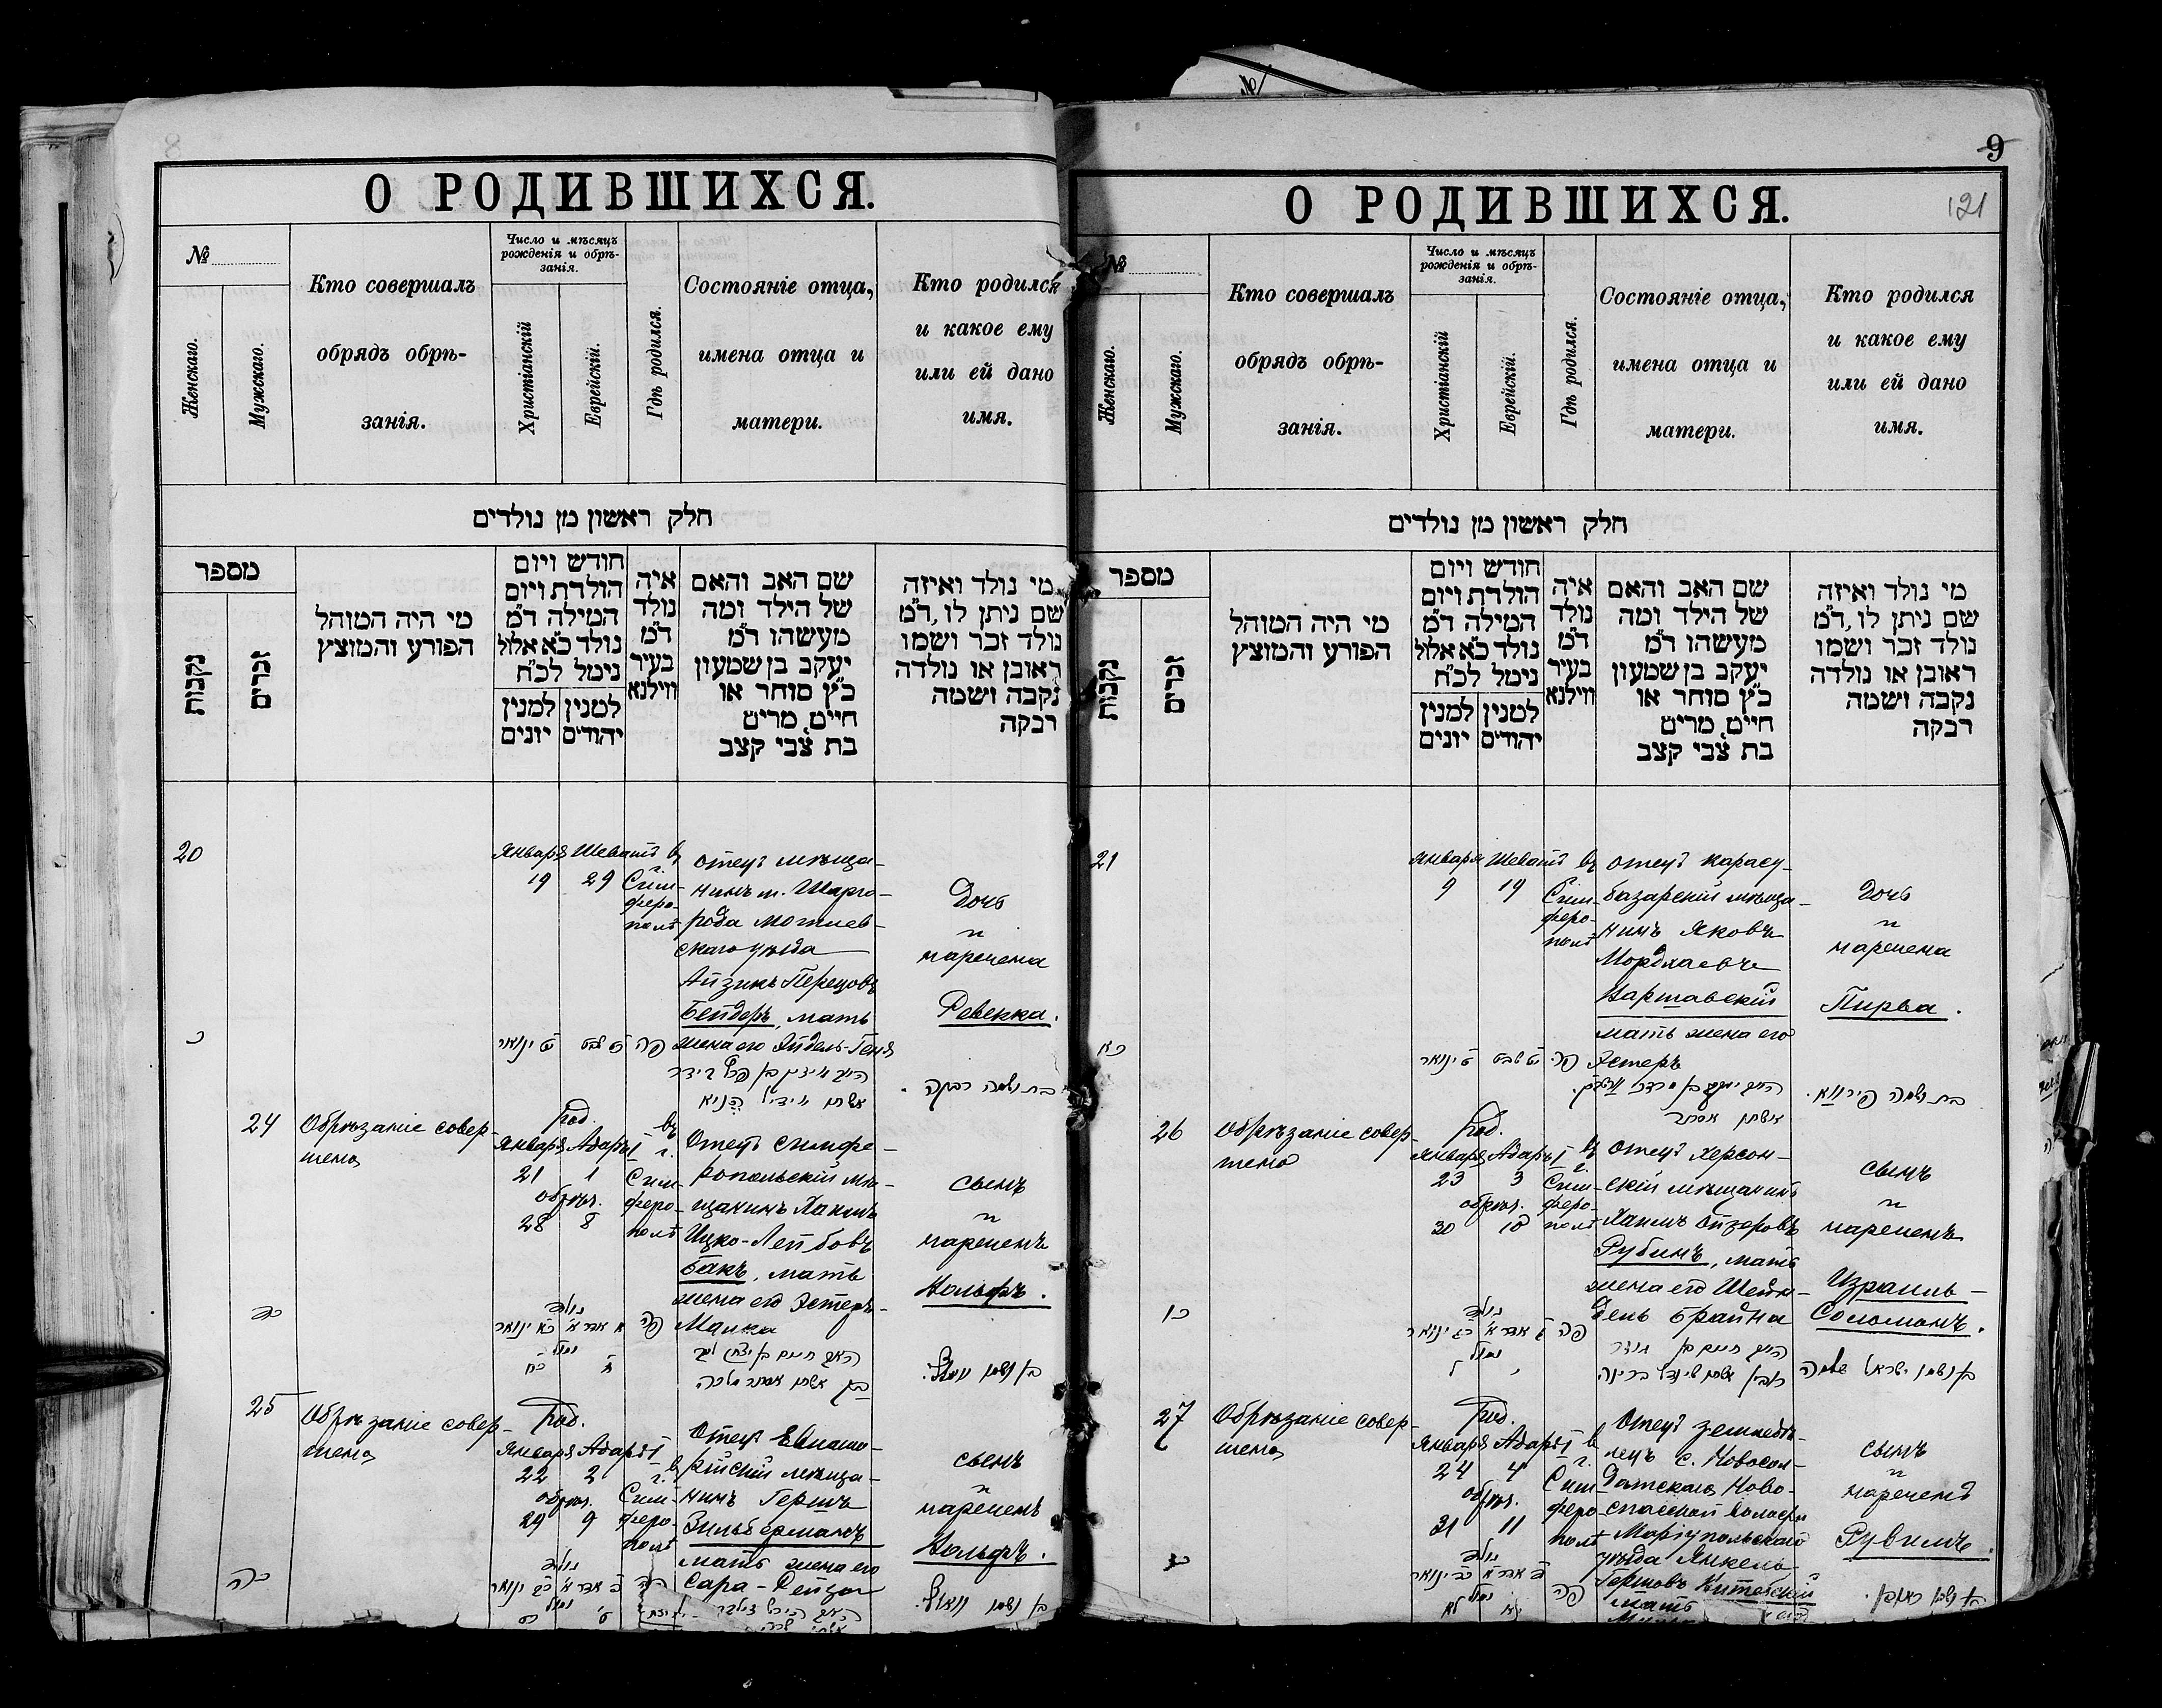 8
О РОДИВШИХСЯ.
№
Женскаго.
Мужскаго.
Кто совершалъ
обрядъ обрѣ-
занія.
Число и мѣсяцъ
рожденія и обрѣ-
занія.
Христіанскій
Еврейскій.
Гдѣ родился.
Состояніе отца,
имена отца и
матери.
Кто родился
и какое ему
или ей дано
имя.
חלק ראשון מן נולדים
מספר
נקבות
זכרים
מי היה המוהל
הפורע והמוצץ
חודש ויום
הולדת ויום
המילה ד״מ
נולד כ״א אלול
נימל לכ״ח
למנין יהודים
למנין יונים
איה
נולד
ד״מ
בעיר
ווילנא
שם האב והאם
של הילד ומה
מעשהו ד״מ
יעקב בן שמעון
כ״ץ סוחר או
חייט, מרים
בת צבי קצב
מי נולד ואיזה
שם ניתן לו, ד״מ
נולד זכר ושמו
ראובן או נולדה
נקבה ושמה
רבקה
20
Января Шеватъ
19 29
въ г.
Сим-
феро-
полѣ
отецъ мѣща-
нинъ м. Шарго-
рода Могилев-
скаго уѣзда
Айзикъ Перецовъ
Бейдеръ, мать
жена его Эйдель-Геня
Дочь
и
наречена
Ревекка.
כ
פה
בת ושמה רבקה
24
Обрѣзаніе совер-
шено
Род.
Января Адаръ I
21 1
обрѣз.
28 8
въ г.
Сим-
феро-
полѣ
Отецъ симфе-
ропольскій мѣ-
щанинъ Хаимъ
Ицко-Лейбовъ
Бакъ, мать
жена его Эстеръ-
Малка
сынъ
и
нареченъ
Вольфъ.
כד
נולד
פה
נימול
25
Обрѣзаніе совер-
шено
Род.
Января Адаръ I
22 2
обрѣз.
29 9
въ г.
Сим-
феро-
полѣ
Отецъ Евпато-
рійскій мѣща-
нинъ Гершъ
Зильберманъ
мать жена его
Сара-Рейза
сынъ
и
нареченъ
Вольфъ.
כה
נולד
נימול
9
121
О РОДИВШИХСЯ.
№
Женскаго.
Мужскаго.
Кто совершалъ
обрядъ обрѣ-
занія.
Число и мѣсяцъ
рожденія и обрѣ-
занія.
Христіанскій
Еврейскій.
Гдѣ родился.
Состояніе отца,
имена отца и
матери.
Кто родился
и какое ему
или ей дано
имя.
חלק ראשון מן נולדים
מספר
נקבות
זכרים
מי היה המוהל
הפורע והמוצץ
חודש ויום
הולדת ויום
המילה ד״מ
נולד כ״א אלול
נימל לכ״ח
למנין יהודים
למנין יונים
איה
נולד
ד״מ
בעיר
ווילנא
שם האב והאם
של הילד ומה
מעשהו ד״מ
יעקב בן שמעון
כ״ץ סוחר או
חייט, מרים
בת צבי קצב
מי נולד ואיזה
שם ניתן לו, ד״מ
נולד זכר ושמו
ראובן או נולדה
נקבה ושמה
רבקה
21
Января Шеватъ
9 19
въ
Сим-
феро-
полѣ
отецъ карасу-
базарскій мѣща-
нинъ Яковъ
Мордхаевъ
Варшавскій
мать жена его
Эстеръ
Дочь
и
наречена
Пирва.
כא
פה
26
Обрѣзаніе совер-
шено
Род.
Января Адаръ I
23 3
обрѣз.
30 10
въ г.
Сим-
феро-
полѣ
отецъ херсон-
скій мѣщанинъ
Хаимъ Ойзеровъ
Рубинъ, мать
жена его Шейн-
дель Брайна
сынъ
и
нареченъ
Израиль-
Соломонъ.
כו
נולד
פה
נימול
בן ושמו ישראל שלמה
27
Обрѣзаніе совер-
шено
Род.
Января Адаръ I
24 4
обрѣз.
31 11
въ г.
Сим-
феро-
полѣ
Отецъ земледѣ-
лецъ с. Новосол-
датскаго Ново-
спасской волости
Маріупольскаго
уѣзда Янкель
Гершовъ
мать
сынъ
и
нареченъ
Рувимъ.
כז
נולד
פה
נימול
בן ושמו ראובן.